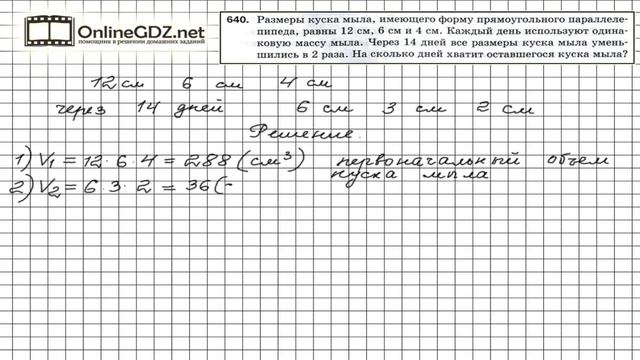 OnlineGDZ.net
помощник в решении домашних заданий
640. Размеры куска мыла, имеющего форму прямоугольного параллеле-
пипеда, равны 12 см, 6 см и 4 см. Каждый день используют одина-
ковую массу мыла. Через 14 дней все размеры куска мыла умень-
шились в 2 раза. На сколько дней хватит оставшегося куска мыла?
12 см 6 см 4 см
через 14 дней 6 см 3 см 2 см
Решение.
1) V₁ = 12 · 6 · 4 = 288 (см³) первоначальный объем
куска мыла
2) V₂ = 6 · 3 · 2 = 36 (